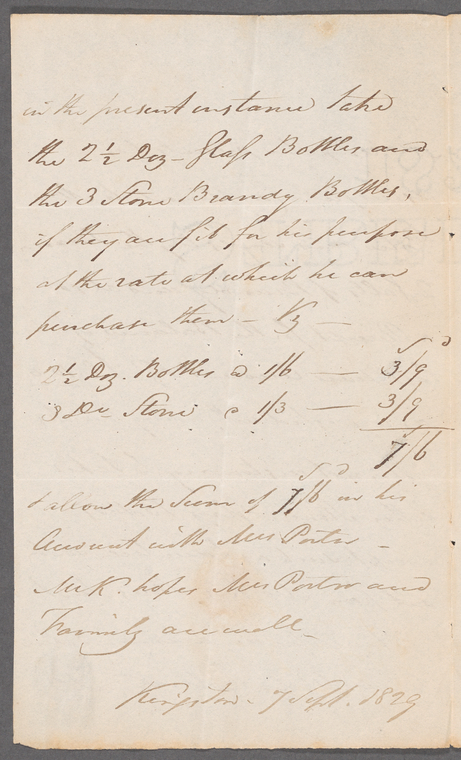 in the present instance take
the 2½ Doz - Glass Bottles and
the 3 Stone Brandy Bottles,
if they are fit for his purpose
at the rate at which he can
purchase them - Viz -
S D
2½ Doz. Bottles @ 1/6 — 3/9
3 Do Stone @ 1/3 — 3/9
7/6
S D
& allow the Sum of 7/6 in his
Account with Mrs Porter -
Mr K. hopes Mrs Porter and
Family are well -
Kingston - 7 Sept. 1829